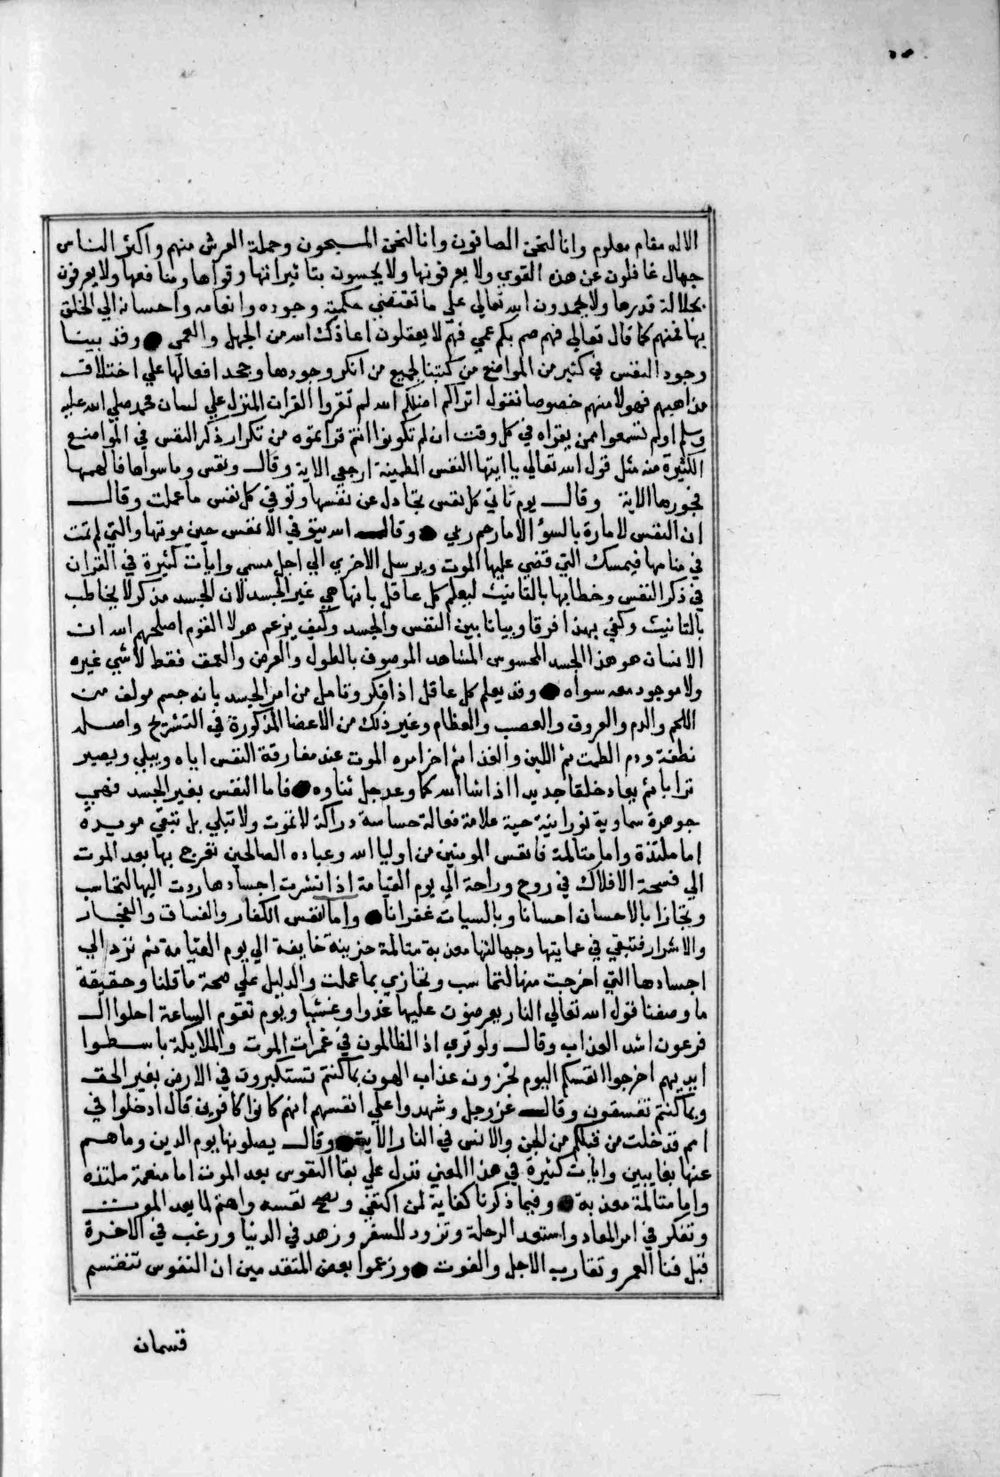 الا له مقام معلوم وانا لنحن الصافون وانا لنحن المسبحون وحملة العرش منهم واكثر الناس
جهال غافلون عن هذه القوي ولا يعرفونها ولا يحسون بتاثيراتها وقواها ومنافعها ولا يعرفون
بجلالة قدرها ولا يحمدون الله تعالي علي ما تقتضي حكمته وجوده وانعامه واحسانه الي الخلق
بها عنهم كما قال تعالي فهم صم بكم عمي فهم لا يعقلون اعاذك الله من الجهل والعمي وقد بينا
وجود النفس في كثير من المواضع من كتبنا لجميع من انكر وجودها وجحد افعالها علي اختلاف
مذاهبهم فهولا منهم خصوصا نقول اتراكم اصلحكم الله لم تقروا القران المنزل علي لسان محمد صلي الله عليه
وسلم اولم تسمعوا ممن يقراه في كل وقت ان لم تكونوا انتم قراتموه من تكرار ذكر النفس في المواضع
الكثيرة منه مثل قول الله تعالي يا ايتها النفس المطمينة ارجعي الاية وقال ونفس وما سواها فالهمها
فجورها الاية وقال يوم تاتي كل نفس تجادل عن نفسها وتوفي كل نفس ما عملت وقال
ان النفس لامارة بالسؤ الا ما رحم ربي وقال الله يتوفي الانفس حين موتها والتي لم تمت
في منامها فيمسك التي قضي عليها الموت ويرسل الاخري الي اجل مسمي وايات كثيرة في القران
في ذكر النفس وخطابها بالتانيث ليعلم كل عاقل بانها هي غير الجسد لان الجسد مذكر لا يخاطب
بالتانيث وكفي بهذا فرقا وبيانا بين النفس والجسد وكيف يزعم هولا القوم اصلحهم الله ان
الانسان هو هذا الجسد المحسوس المشاهد الموصوف بالطول والعرض والعمق فقط لا شي غيره
ولا موجود معه سواه وقد يعلم كل عاقل اذا فكر وتامل من امر الجسد بانه جسم مولف من
اللحم والدم والعروق والعصب والعظام وغير ذلك من الاعضا المذكورة في التشريح واصله
نطفة ودم الطمث ثم اللبن والغذا ثم اخر امره الموت عند مفارقة النفس اياه ويبلي ويصير
ترابا ثم يعاد خلقا جديدا اذا شا الله كما وعد جل ثناوه فاما النفس بغير الجسد فهي
جوهرة سماوية نورانية حية علامة فعالة حساسة دراكة لا تموت ولا تبلي بل تبقي موبدة
اما ملتذة واما متالمة فانفس المومنين من اوليا الله وعباده الصالحين تعرج بها بعد الموت
الي فسحة الافلاك في روح وراحة الي يوم القيامة اذا نشرت اجسادها ردت اليها لتحاسب
وتجازا بالاحسان احسانا وبالسيات غفرانا واما انفس الكفار والفساق والفجار
والاشرار فتبقي في عمايتها وجهالتها معذبة متالمة حزينة خايفة الي يوم القيامة ثم ترد الي
اجسادها التي اخرجت منها لتحاسب وتجازي بما عملت والدليل علي صحة ما قلنا وحقيقة
ما وصفنا قول الله تعالي النار يعرضون عليها غدوا وعشيا ويوم تقوم الساعة ادخلوا ال
فرعون اشد العذاب وقال ولو تري اذ الظالمون في غمرات الموت والملايكة باسطوا
ايديهم اخرجوا انفسكم اليوم تجزون عذاب الهون بما كنتم تستكبرون في الارض بغير الحق
وبما كنتم تفسقون وقال عز وجل وشهدوا علي انفسهم انهم كانوا كافرين قال ادخلوا في
امم قد خلت من قبلكم من الجن والانس في النار الاية وقال يصلونها يوم الدين وما هم
عنها بغايبين وايات كثيرة في هذا المعني تدل علي بقا النفوس بعد الموت اما منعمة ملتذه
واما متالمة معذبة وفيما ذكرنا كفاية لمن اكتفي ونصح نفسه واهتم لما بعد الموت
وتفكر في امر المعاد واستعد الرحلة وتزود للسفر وزهد في الدنيا ورغب في الاخرة
قبل فنا العمر وتقارب الاجل والفوت وزعموا بعض المتقدمين ان النفوس تنقسم
قسمان